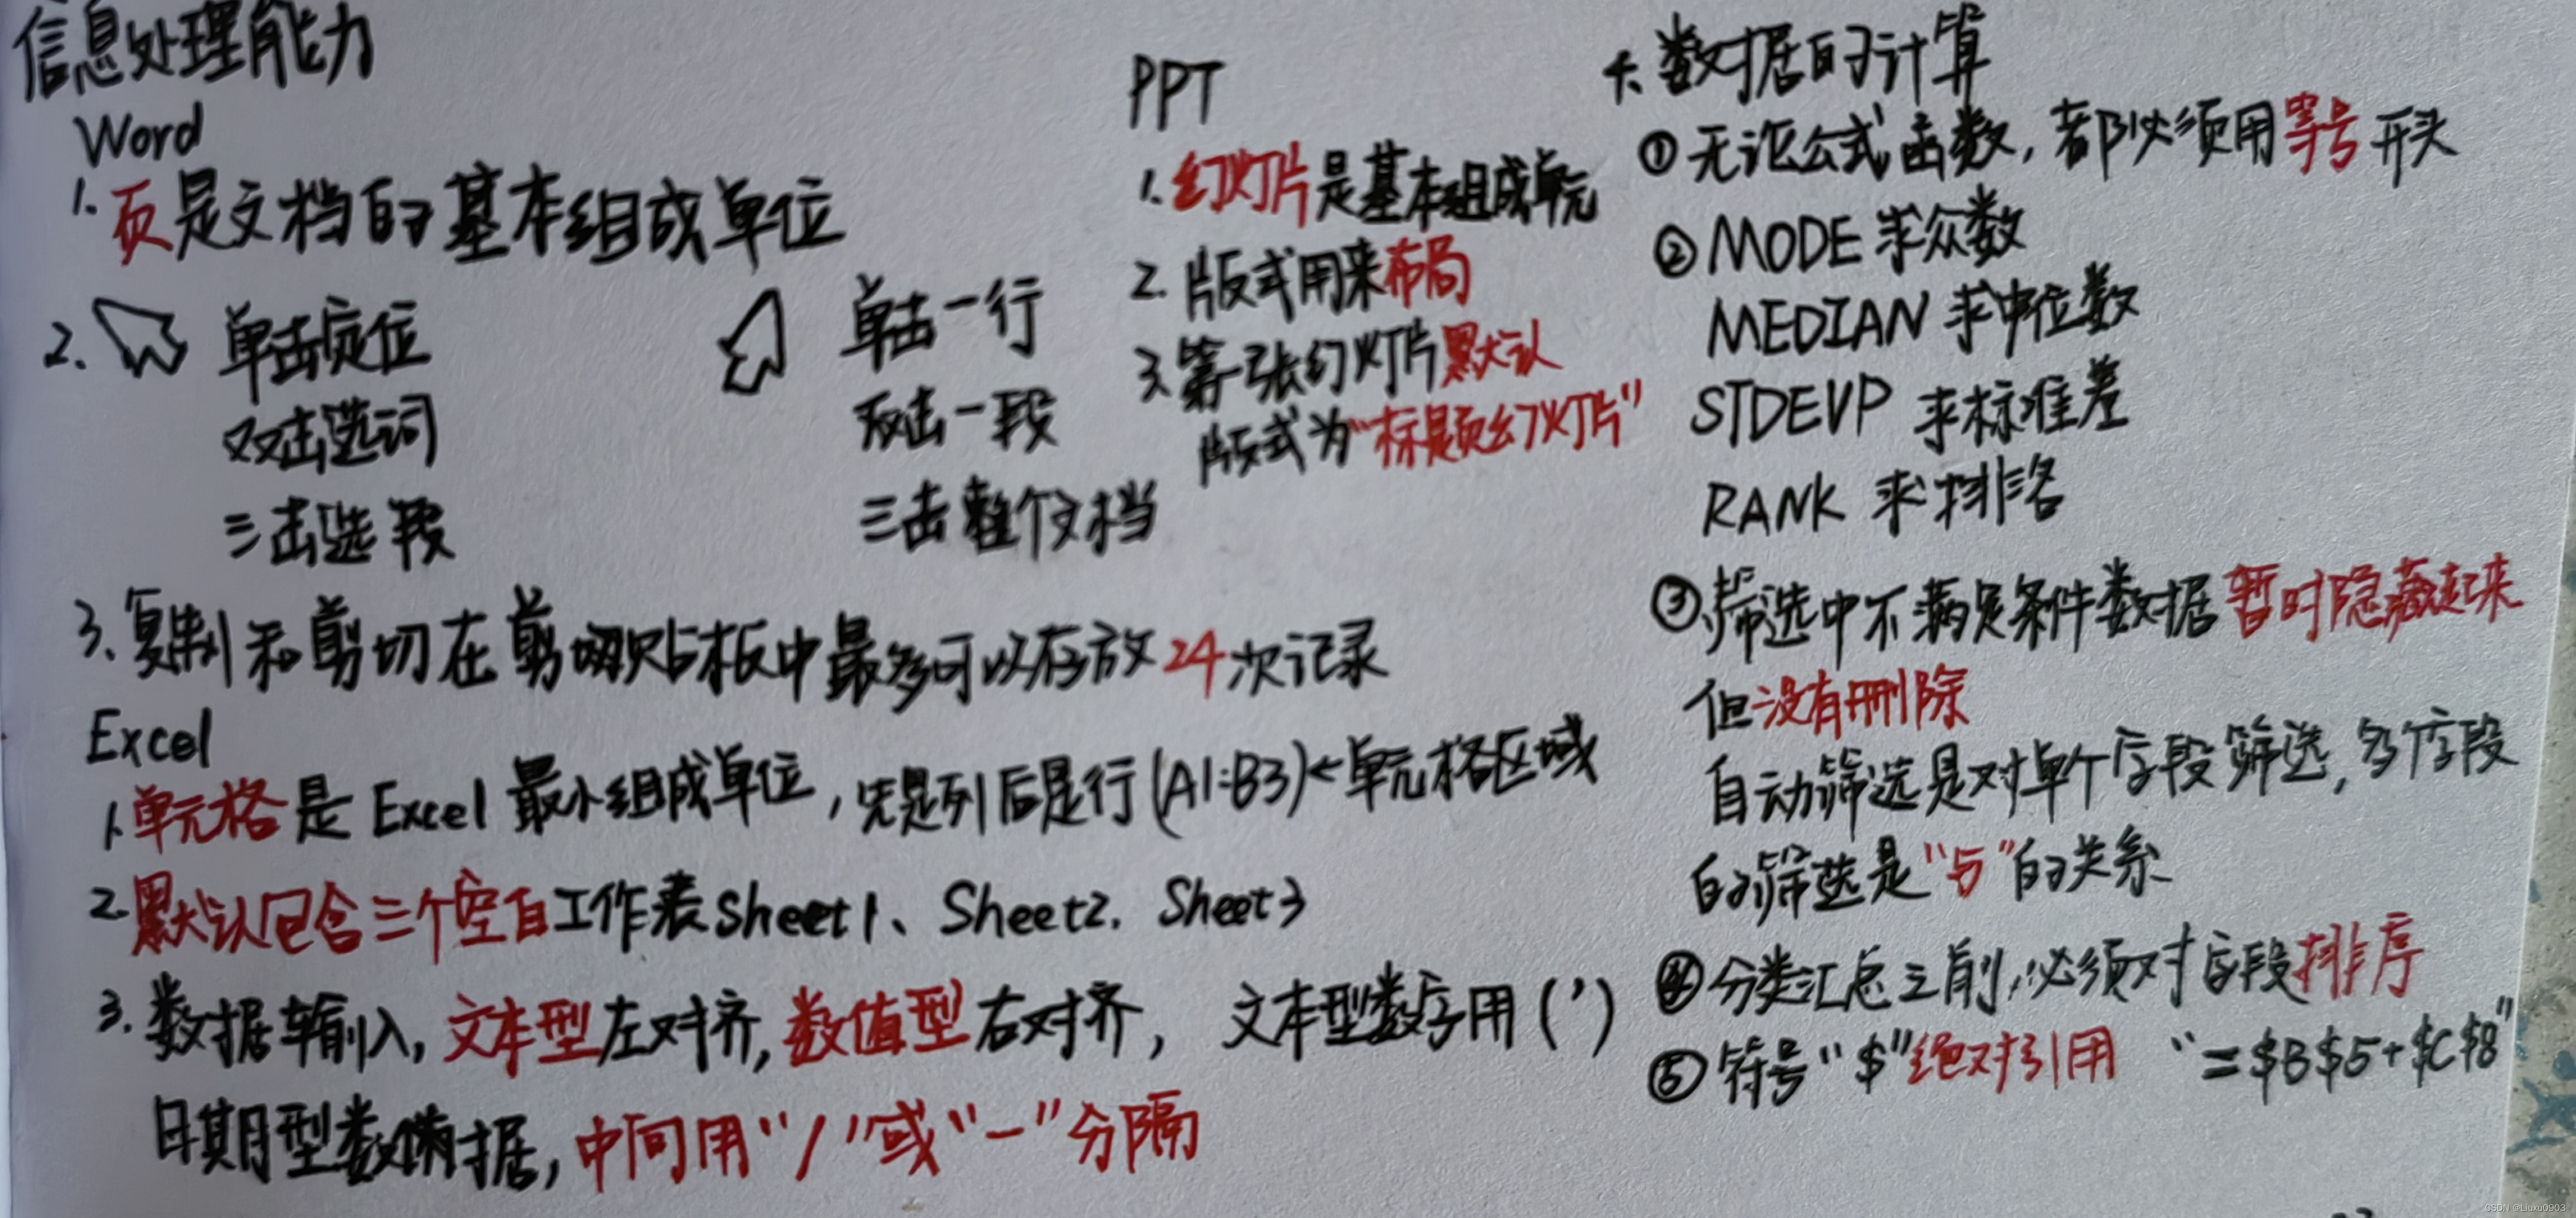 信息处理能力
Word
1. 页是文档的基本组成单位
2. 单击定位
双击选词
三击选段
单击一行
双击一段
三击整个文档
3. 复制和剪切在剪切贴板中最多可以存放24次记录
Excel
1. 单元格是Excel最小组成单位，先是列后是行(A1:B3)←单元格区域
2. 默认包含三个空白工作表Sheet1、Sheet2、Sheet3
3. 数据输入，文本型左对齐，数值型右对齐， 文本型数字用(')
日期型数据，中间用"/"或"-"分隔
PPT
1. 幻灯片是基本组成单元
2. 版式用来布局
3. 第一张幻灯片默认
版式为"标题幻灯片"
4. 数据的计算
① 无论公式函数，都必须用等号开头
② MODE 求众数
MEDIAN 求中位数
STDEVP 求标准差
RANK 求排名
③ 筛选中不满足条件数据暂时隐藏起来
但没有删除
自动筛选是对单个字段筛选，多个字段
的筛选是"与"的关系
④ 分类汇总之前，必须对字段排序
⑤ 符号"$"绝对引用 "=$B$5+$C$8"
CSDN @Liuxu0903